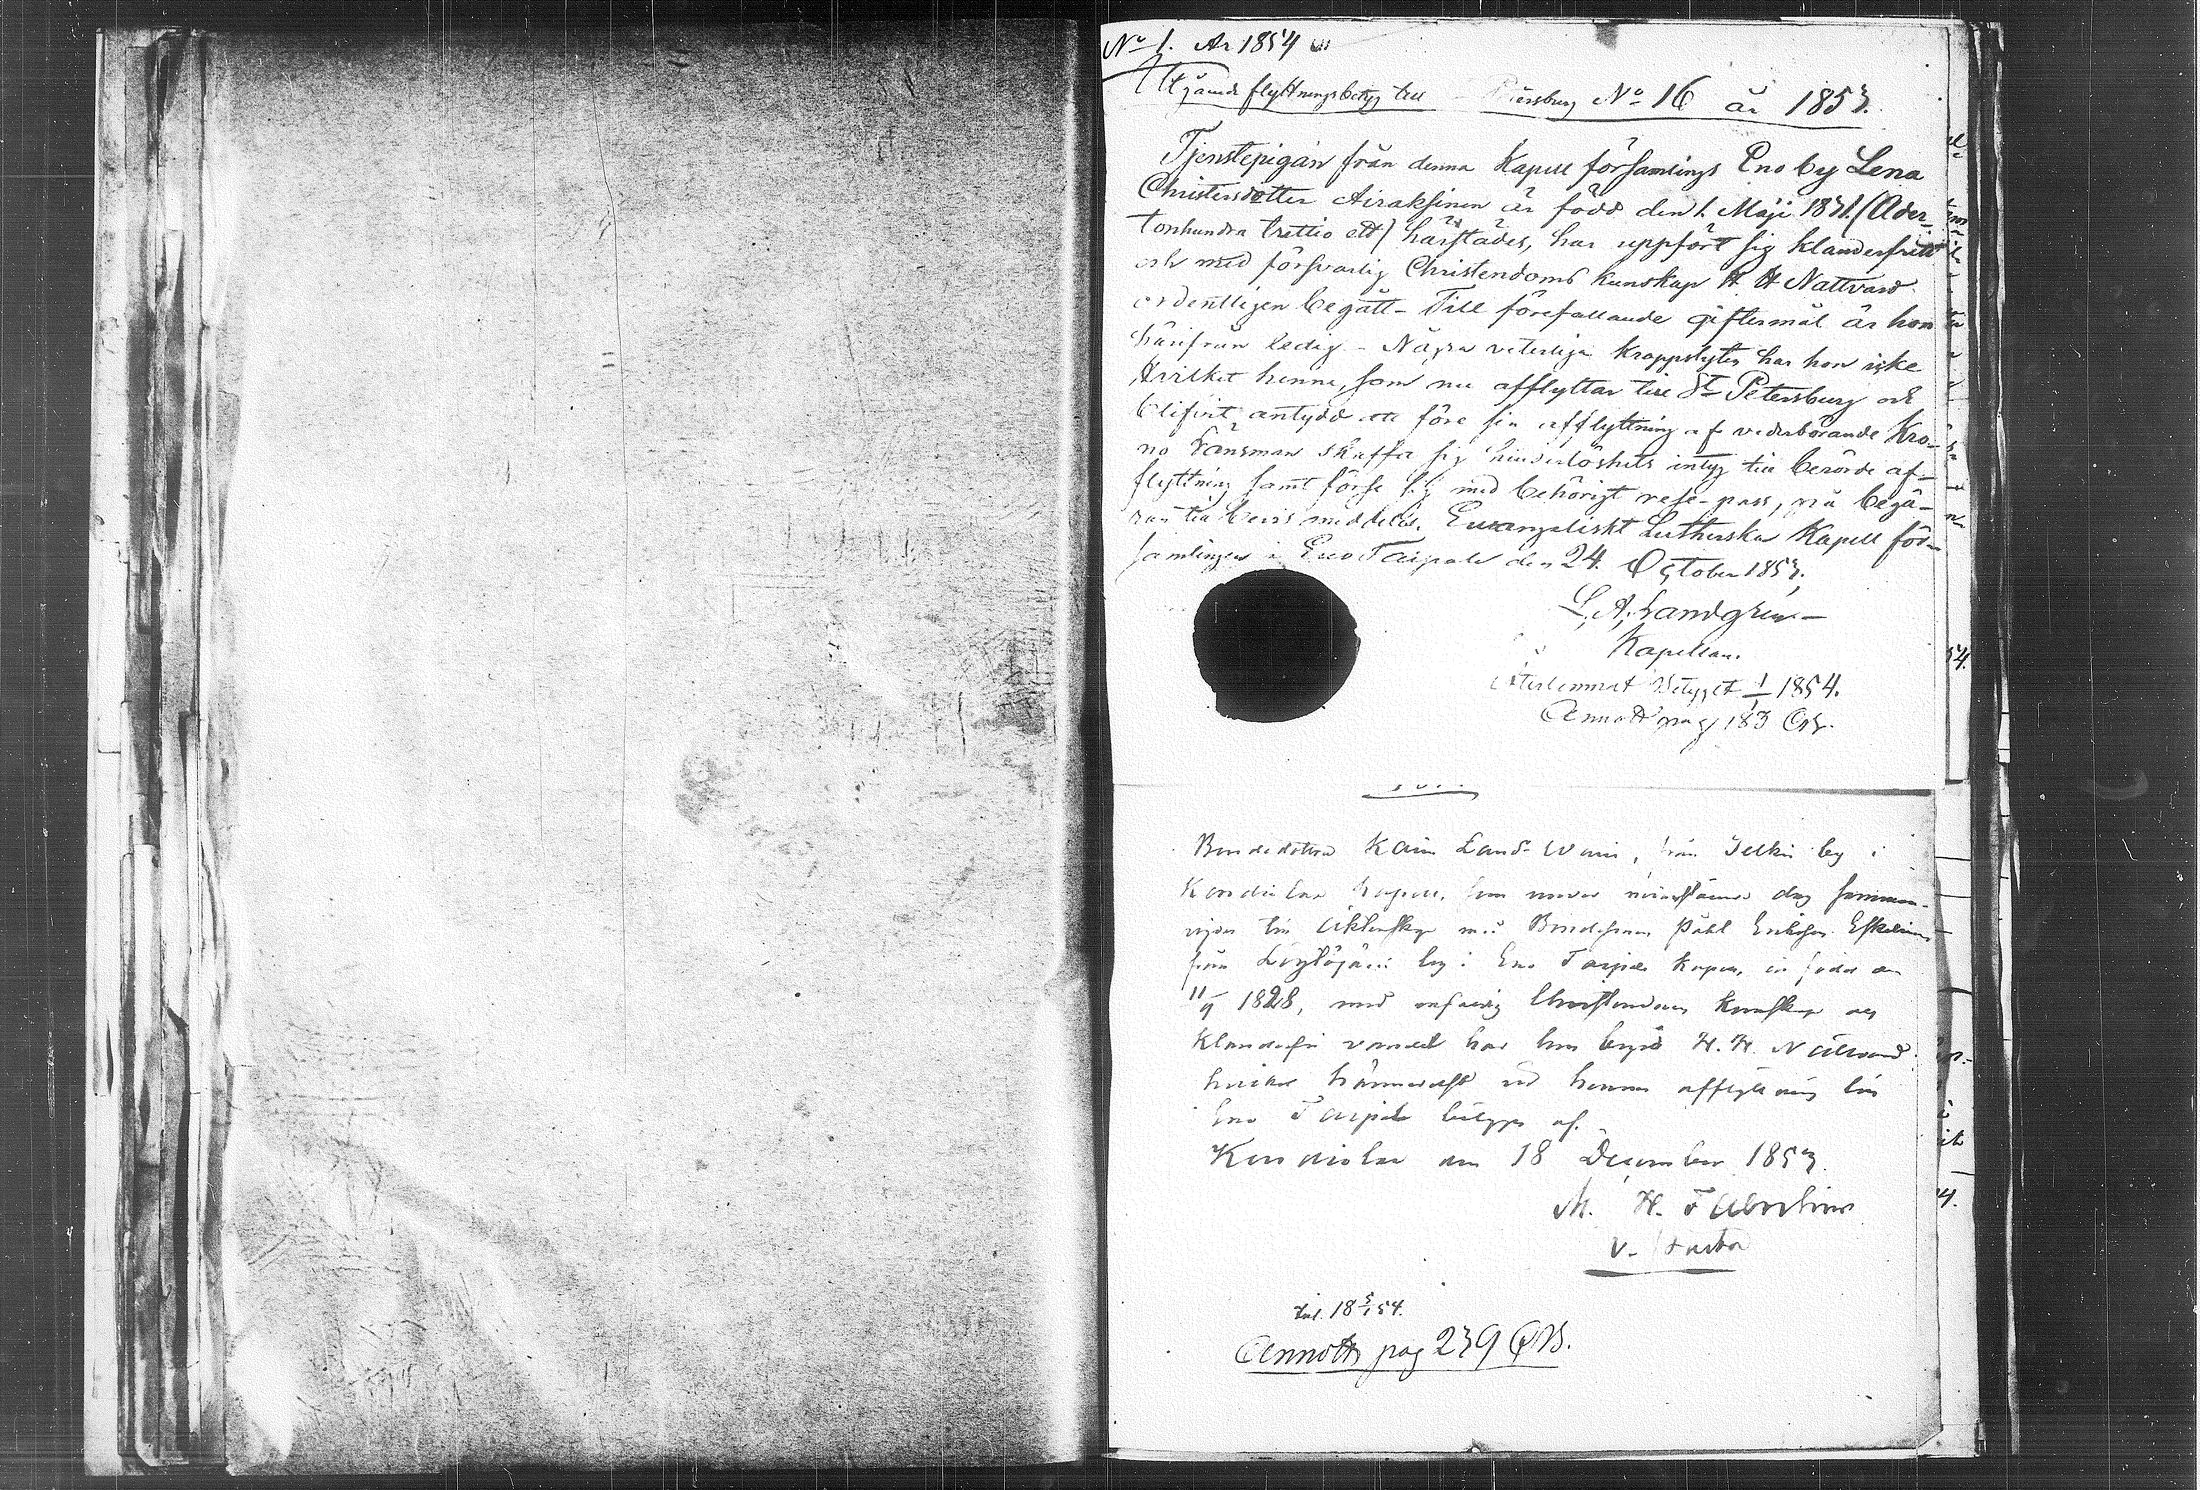 No 1. År 1854
Utgående flyttningsbetyg till Petersburg No 16 år 1853.
Tjenstepigan från denna Kapell församlings Eno by Lena
Christersdotter Airaksinen är född den 1. Maji 1831. (Ader-
tonhundra trettio ett) härstädes, har uppfört sig klanderfritt
och med försvarlig Christendoms kunskap H. H. Nattvard
ordentligen begått – Till förefallande giftermål är hon
härifrån ledig – Några veterliga kroppslyten har hon icke
Hvilket henne, som nu afflyttar till St Petersburg och
blifvit antydd att före sin afflyttning af vederbörande Kro-
no Länsman skaffa sig hinderlöshets intyg till berörde af-
flyttning samt förse sig med behörigt rese-pass, på begä-
ran till bevis meddelas. Evangeliskt Lutherska Kapell för-
samlingen i Eno Taipale den 24. October 1853.
L. A. Landgren
Kapellan.
Återlemnat Betyget 1/1 1854.
Annott pag 183 CB.
Bondedottren Karin Larsd:r, från Selkie by i
Kondiolax kapell, som
med Bondesonen Påhl Eriksson Eskelinen
från Löytöjärvi by i Eno Taipale Kapell, är född den
11/9 1828, med Christendoms kunskap och
klanderfri vandel har hon begått H. H. Nattvard
hvilket härmedelst vid hennes afflyttning till
Eno Taipale betygas af.
Kondiolax den 18 December 1853.
M. H.
V. Pastor
Inl. 18 5/1 54.
Annott pag 239 CB.